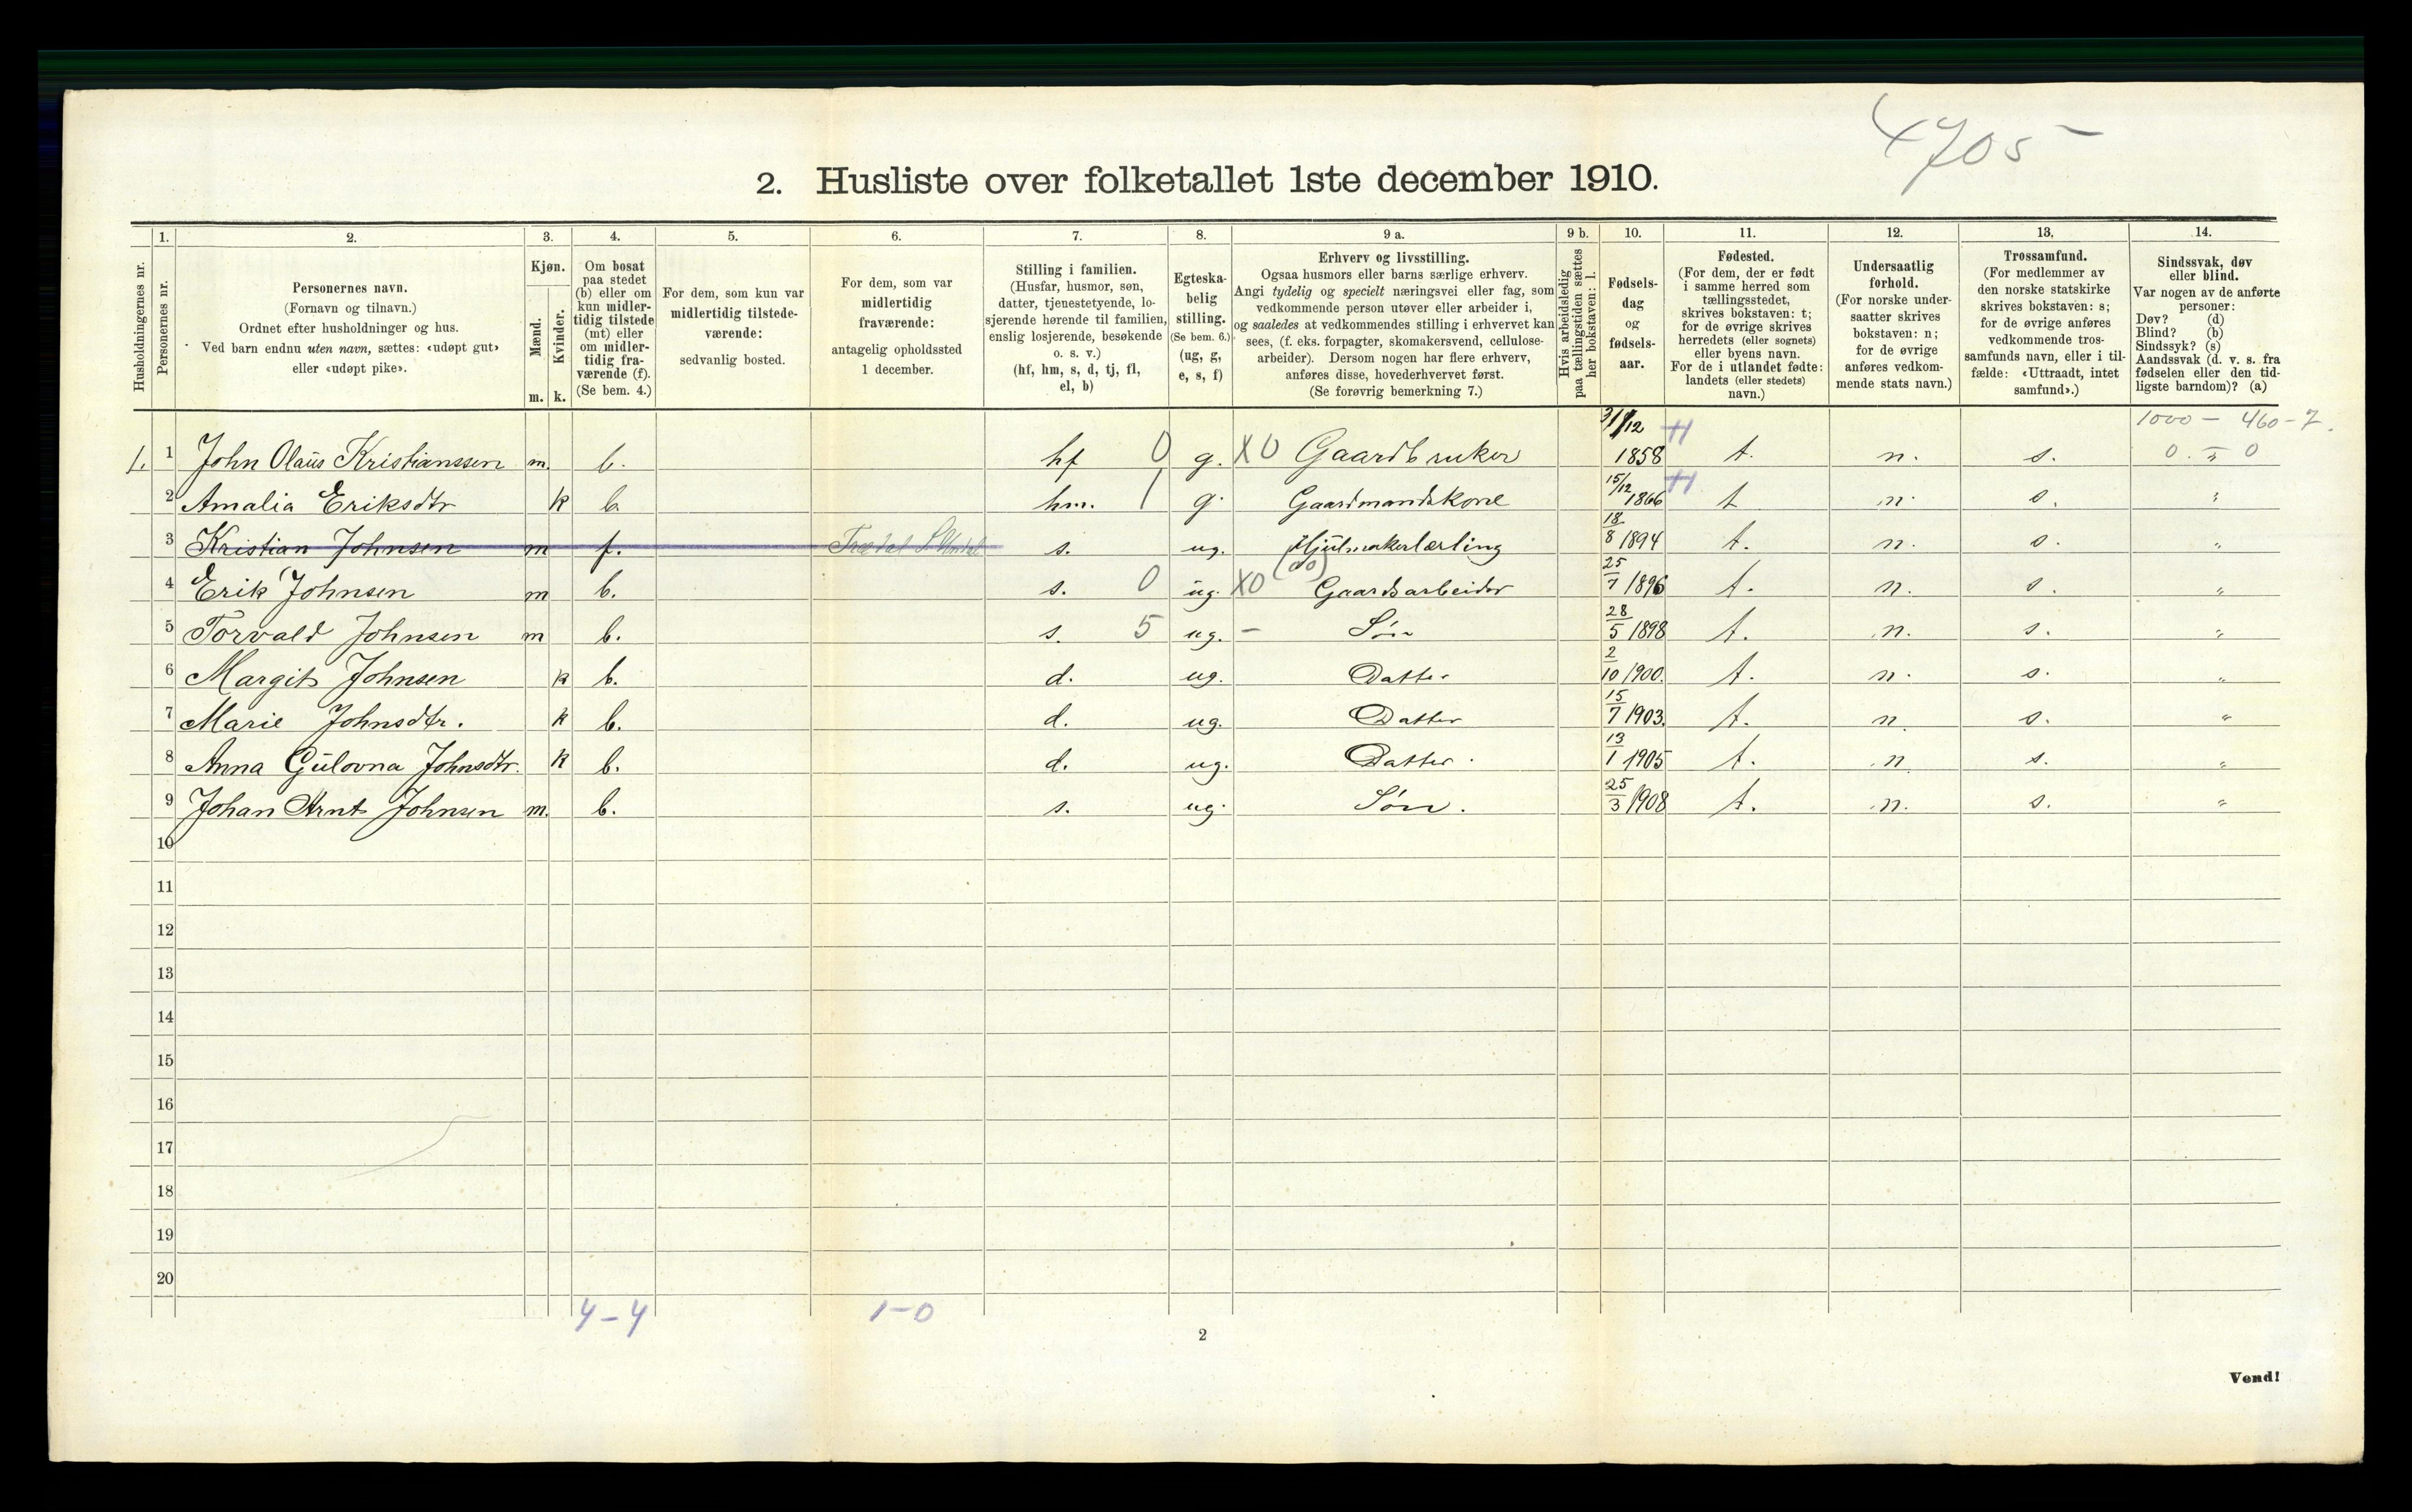 4705
2. Husliste over folketallet 1ste december 1910.
Husholdningernes nr.
1. Personernes nr.
2. Personernes navn.
(Fornavn og tilnavn.)
Ordnet efter husholdninger og hus.
Ved barn endnu uten navn, sættes: «udøpt gut»
eller «udøpt pike».
3. Kjøn.
Mænd. Kvinder.
m. k.
4. Om bosat
paa stedet
(b) eller om
kun midler-
tidig tilstede
(mt) eller
om midler-
tidig fra-
værende (f).
(Se bem. 4.)
5. For dem, som kun var
midlertidig tilstede-
værende:
sedvanlig bosted.
6. For dem, som var
midlertidig
fraværende:
antagelig opholdssted
1 december.
7. Stilling i familien.
(Husfar, husmor, søn,
datter, tjenestetyende, lo-
sjerende hørende til familien,
enslig losjerende, besøkende
o. s. v.)
(hf, hm, s, d, tj, fl,
el, b)
8. Egteska-
belig
stilling.
(Se bem. 6.)
(ug, g,
e, s, f)
9 a. Erhverv og livsstilling.
Ogsaa husmors eller barns særlige erhverv.
Angi tydelig og specielt næringsvei eller fag, som
vedkommende person utøver eller arbeider i,
og saaledes at vedkommendes stilling i erhvervet kan
sees, (f. eks. forpagter, skomakersvend, cellulose-
arbeider). Dersom nogen har flere erhverv,
anføres disse, hovederhvervet først.
(Se forøvrig bemerkning 7.)
9 b. Hvis arbeidsledig
paa tællingstiden sættes
her bokstaven: l.
10. Fødsels-
dag
og
fødsels-
aar.
11. Fødested.
(For dem, der er født
i samme herred som
tællingsstedet,
skrives bokstaven: t;
for de øvrige skrives
herredets (eller sognets)
eller byens navn.
For de i utlandet fødte:
landets (eller stedets)
navn.)
12. Undersaatlig
forhold.
(For norske under-
saatter skrives
bokstaven: n;
for de øvrige
anføres vedkom-
mende stats navn.)
13. Trossamfund.
(For medlemmer av
den norske statskirke
skrives bokstaven: s;
for de øvrige anføres
vedkommende tros-
samfunds navn, eller i til-
fælde: «Uttraadt, intet
samfund».)
14. Sindssvak, døv
eller blind.
Var nogen av de anførte
personer:
Døv? (d)
Blind? (b)
Sindssyk? (s)
Aandssvak (d. v. s. fra
fødselen eller den tid-
ligste barndom)? (a)
1000 - 460 - 7.
1. 1 John Olaüs Kristianssen m. b. hf 0 g. X0 Gaardbruker 1858 t. n. s. 0 „ 0
2 Amalia Eriksdtr k b. hm. 1 g. Gaardmandskone 15/12 1866 t n. s. „
3 Kristian Johnsen m f. s. ug. Hjulmakerlærling 18/8 1894 t. n. s. „
4 Erik Johnsen m b. s. 0 ug. X0 (do) Gaardsarbeider 25/7 1896 t. n. s. „
5 Torvald Johnsen m b. s. 5 ug. - Søn 28/5 1898 t. n. s. „
6 Margit Johnsen k b. d. ug. Datter 2/10 1900. t. n. s. „
7 Marie Johnsdtr. k b. d. ug. Datter 15/7 1903. t. n s. „
8 Anna Gülovna Johnsdtr. k b. d. ug. Datter. 13/1 1905 t. n s. „
9 Johan Arnt Johnsen m. b. s. ug. Søn. 25/3 1908 t. n. s. „
10
11
12
13
14
15
16
17
18
19
20
4-4 1-0
2
Vend!